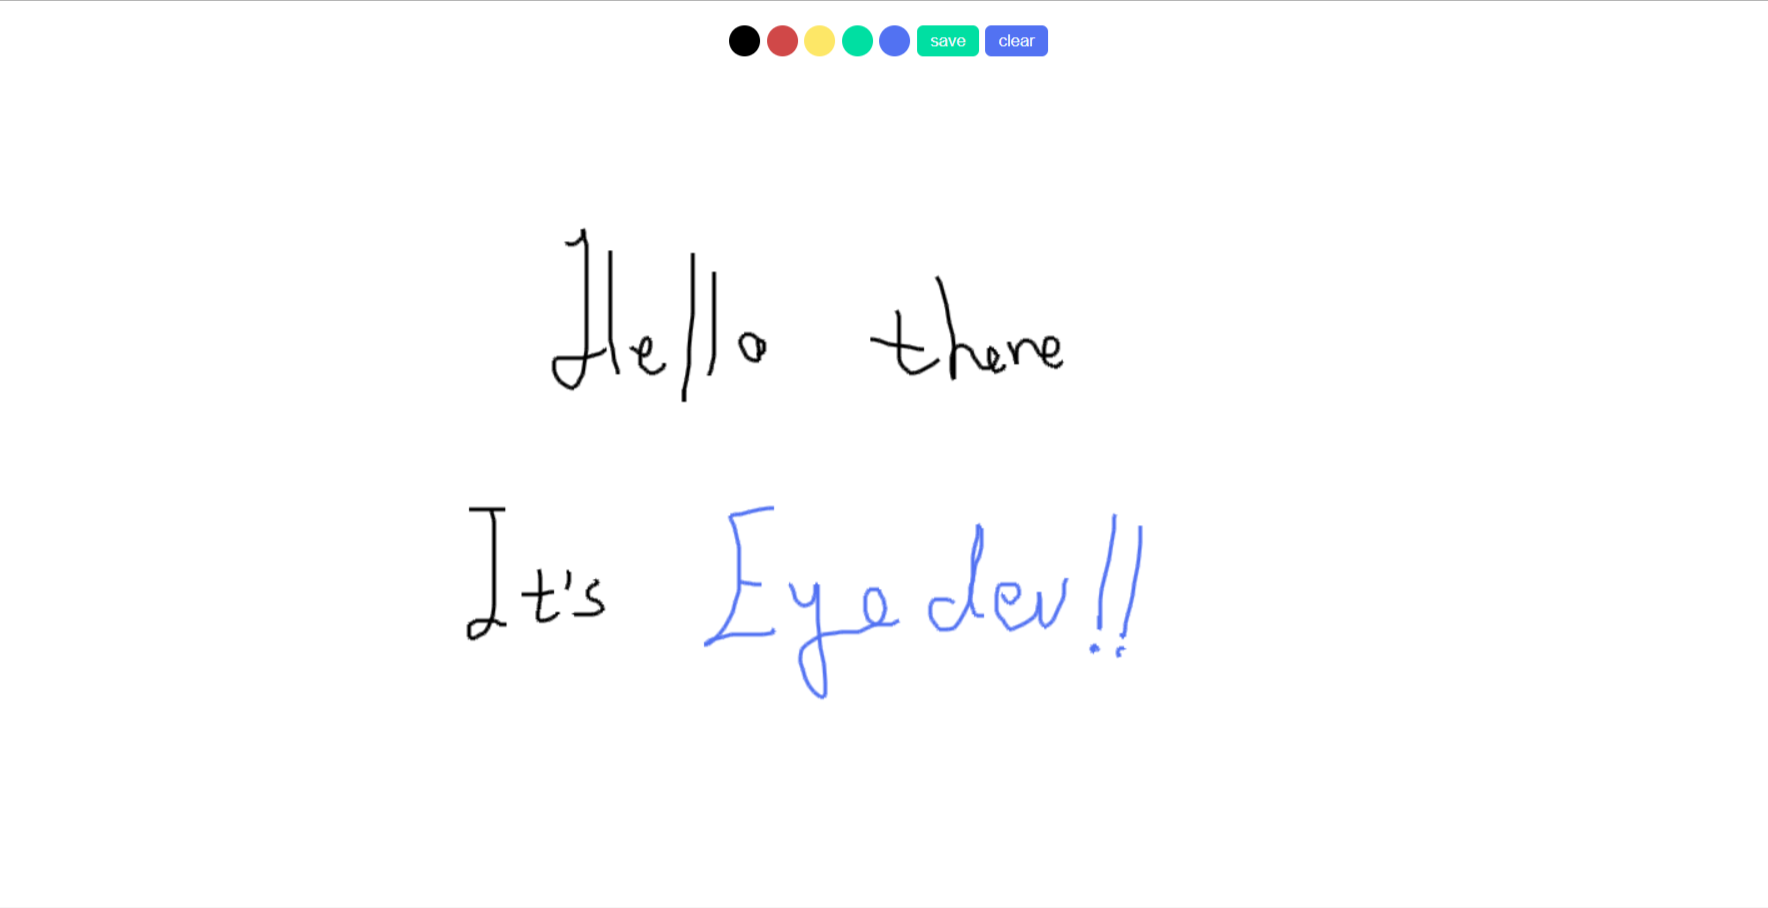 save clear
Hello there
It's Eyedev!!